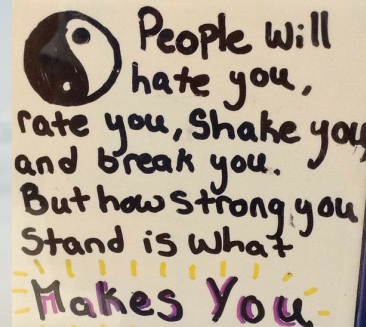 People Will
hate you,
rate you, Shake you
and break you.
But how strong you
Stand is what
Makes You